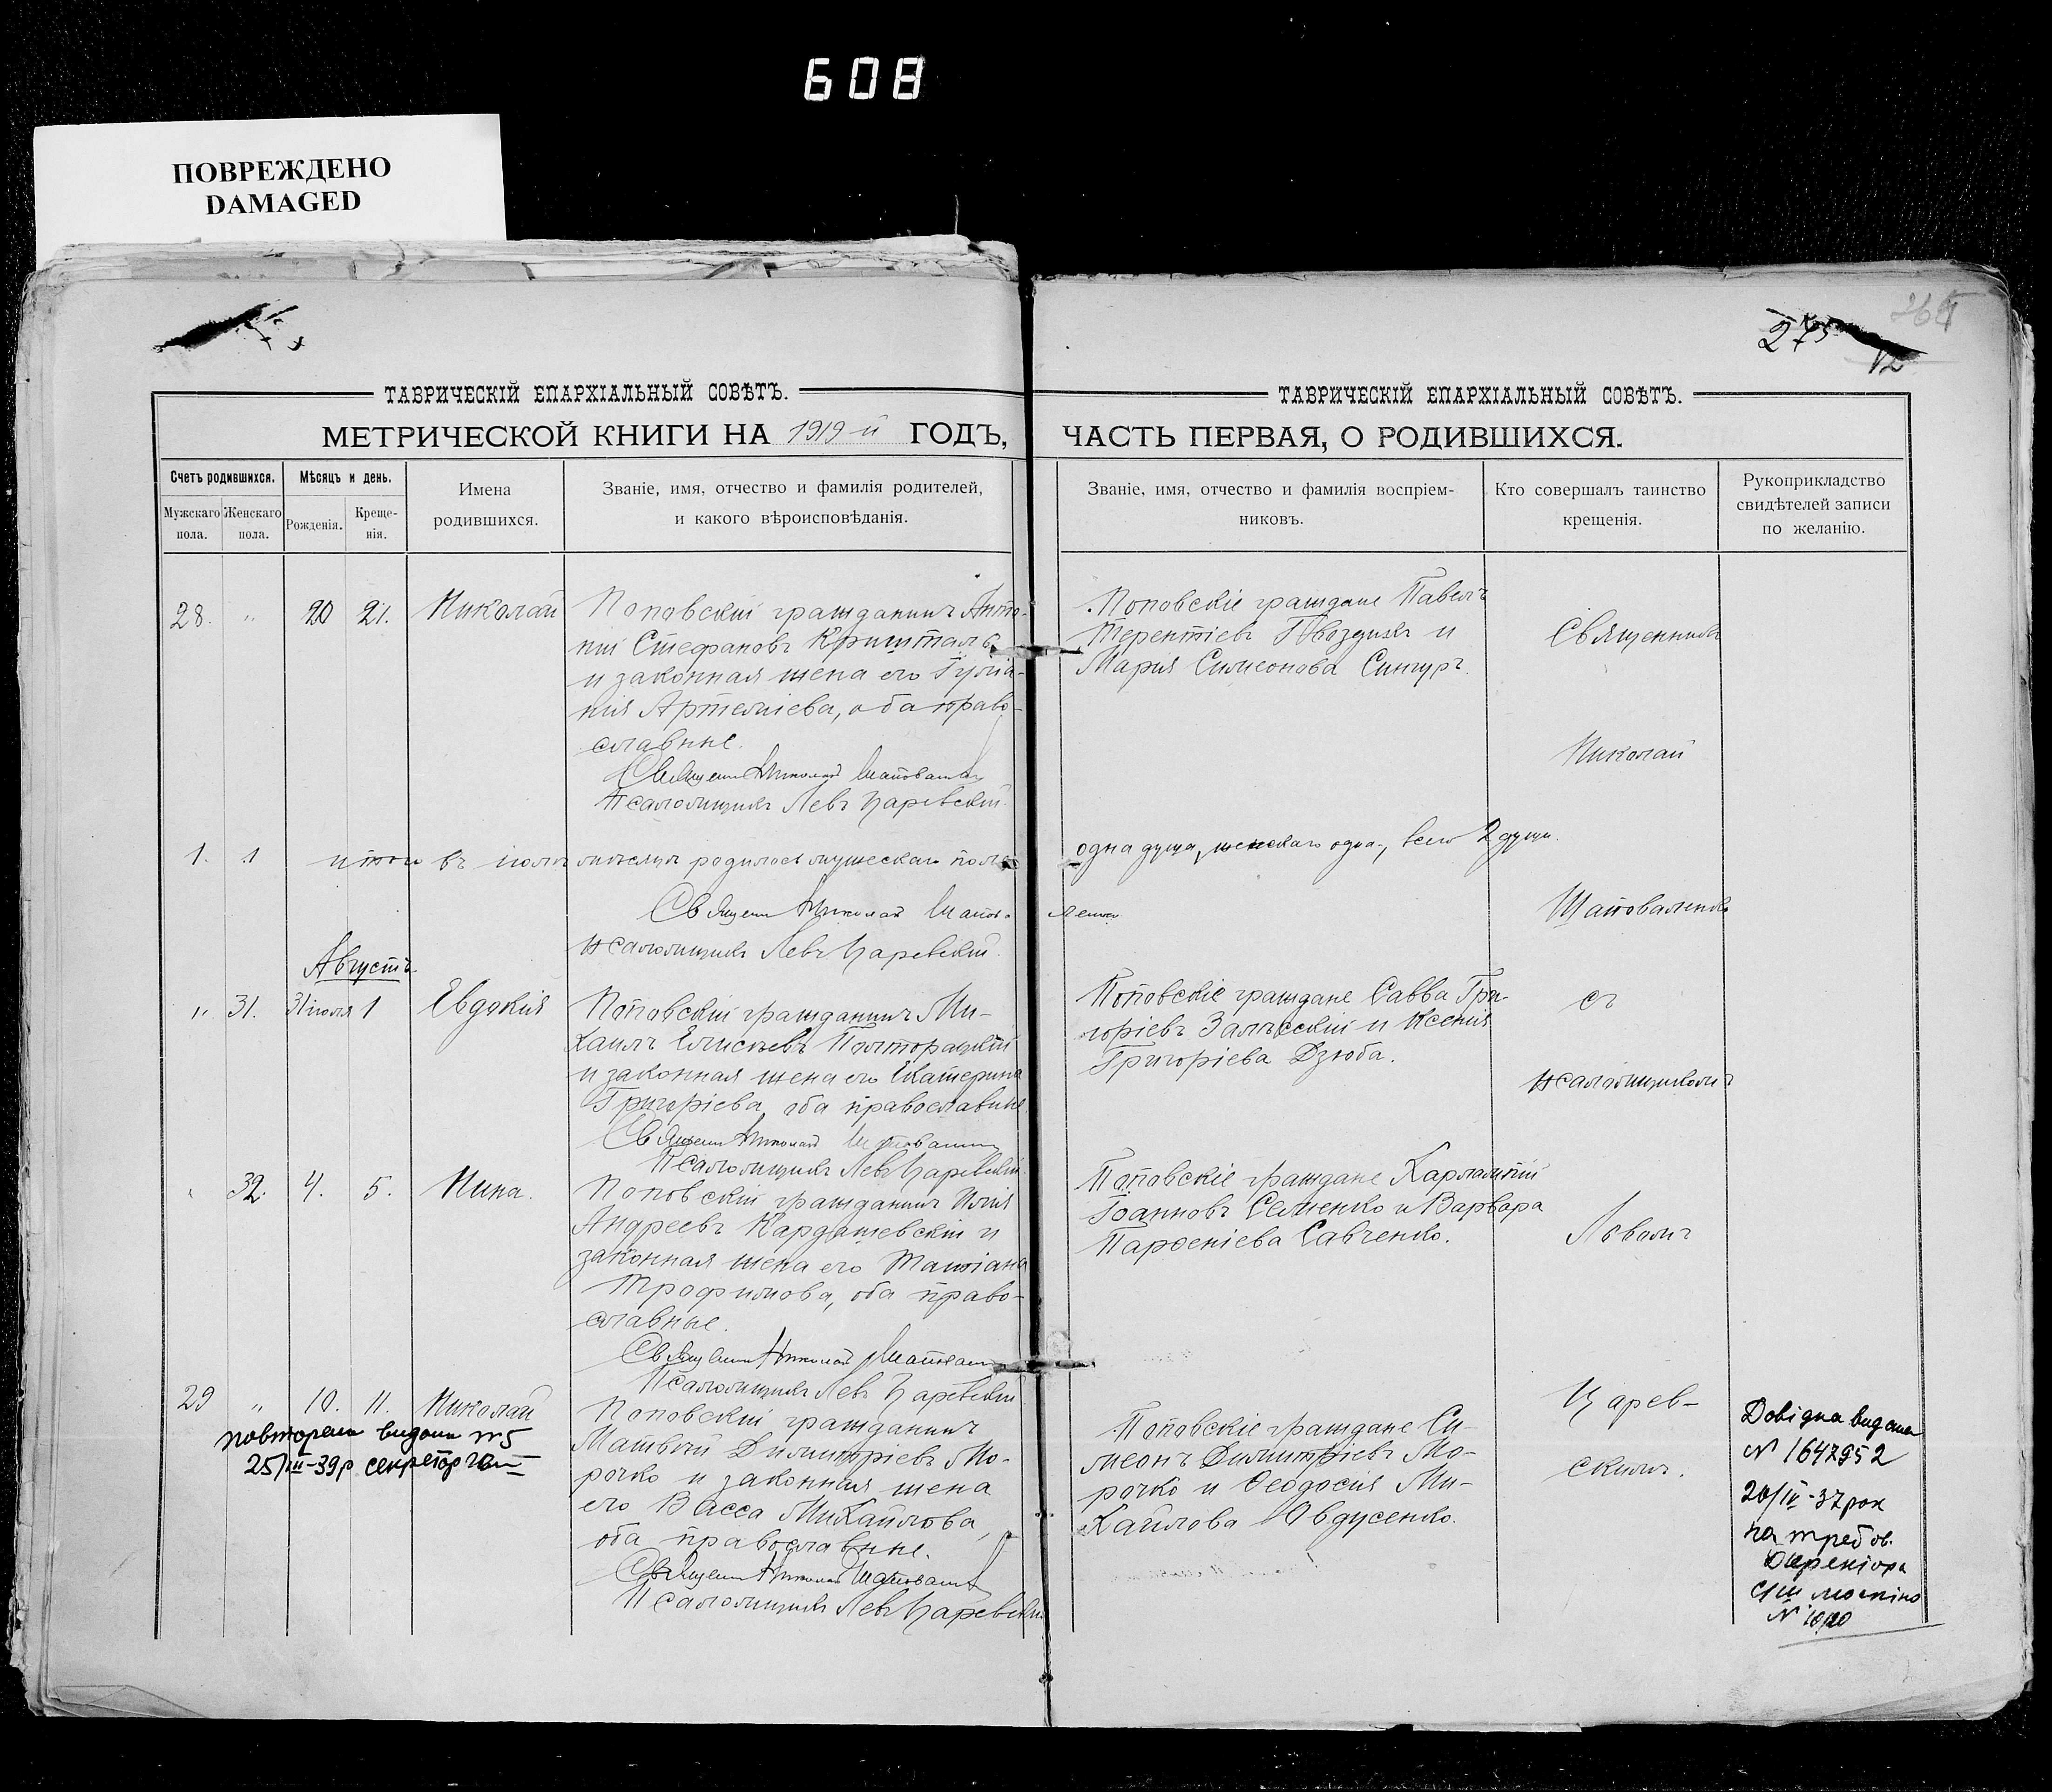 608
ПОВРЕЖДЕНО
DAMAGED
275
12
ТАВРИЧЕСКІЙ ЕПАРХІАЛЬНЫЙ СОВѢТЪ.
ТАВРИЧЕСКІЙ ЕПАРХІАЛЬНЫЙ СОВѢТЪ.
МЕТРИЧЕСКОЙ КНИГИ НА 1919-й ГОДЪ,
ЧАСТЬ ПЕРВАЯ, О РОДИВШИХСЯ.
Счетъ родившихся.
Мужскаго пола.
Женскаго пола.
Мѣсяцъ и день.
Рожденія.
Креще-
нія.
Имена
родившихся.
Званіе, имя, отчество и фамилія родителей,
и какого вѣроисповѣданія.
Званіе, имя, отчество и фамилія воспріем-
никовъ.
Кто совершалъ таинство
крещенія.
Рукоприкладство
свидѣтелей записи
по желанію.
28. " 20 21. Николай
Поповскій гражданинъ Анто-
ній Стефановъ Кришталь
и законная жена его Іуліа-
нія Артеміева, оба право-
славные.
Священ Николай Шаповал
Псаломщикъ Левъ Царевскій.
Поповскіе граждане Павелъ
Терентіевъ Гвоздикъ и
Марія Симеонова Сингуръ.
Священникъ
Николай
Шаповаленко
съ
псаломщикомъ
Львомъ
Царев-
скимъ.
1. 1 итого въ іюлѣ мѣсяцѣ родилось мужескаго пола
одна душа, женскаго одна, всего 2 души.
Священ Николай Шапов
ленко
Псаломщикъ Левъ Царевскій.
Августъ.
" 31. 31 іюля 1 Евдокія
Поповскій гражданинъ Ми-
хаилъ Елисѣевъ Полторацкій
и законная жена его Екатерина
Григоріева, оба православные.
Священ Николай Шаповал
Псаломщикъ Левъ Царевскій.
Поповскіе граждане Савва Гри-
горіевъ Залѣсскій и Ксенія
Григоріева Дзюба.
" 32. 4. 5. Нина.
Поповскій гражданинъ Илія
Андреевъ Кардашевскій и
законная жена его Татіана
Трофимова, оба право-
славные.
Священ Николай Шаповал
Псаломщикъ Левъ Царевскій
Поповскіе граждане Харлампій
Іоанновъ Семенко и Варвара
Парѳеніева Савченко.
29 " 10. 11. Николай
повторена видана №5
25/III-39р секретар
Поповскій гражданинъ
Матвѣй Димитріевъ Мо-
рочко и законная жена
его Васса Михайлова,
оба православные.
Священ Николай Шаповал
Псаломщикъ Левъ Царевскій
Поповскіе граждане Си-
меонъ Димитріевъ Мо-
рочко и Ѳеодосія Ми-
хайлова Овдусенко.
Довідка видана
№ 1647952
20/IV-37 рок
на требов.
Директора